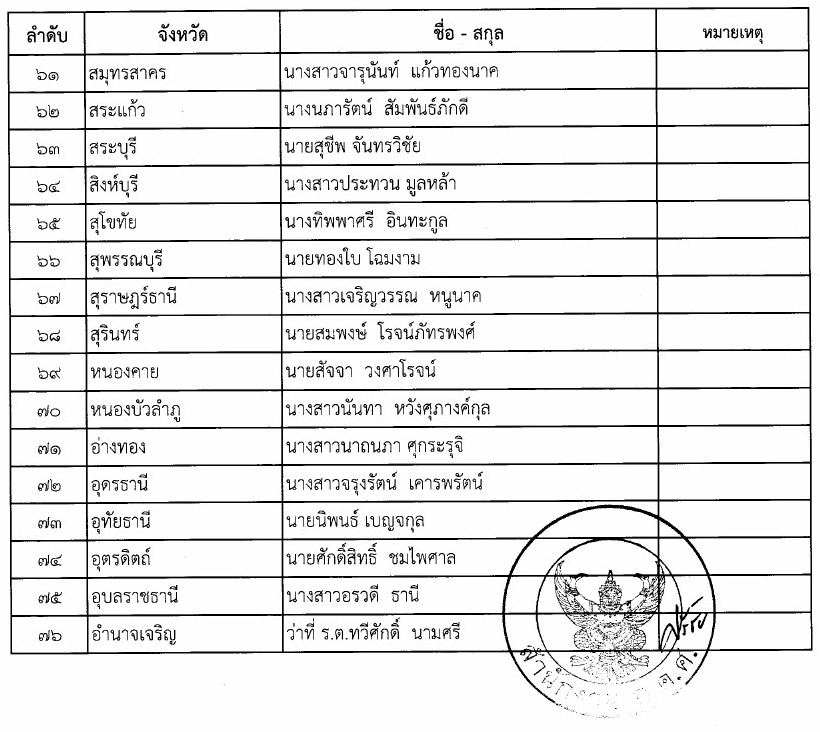 ลำดับ จังหวัด ชื่อ - สกุล หมายเหตุ
๖๑ สมุทรสาคร นางสาวจารุนันท์ แก้วทองนาค
๖๒ สระแก้ว นางนภารัตน์ สัมพันธ์ภักดี
๖๓ สระบุรี นายสุชีพ จันทรวิชัย
๖๔ สิงห์บุรี นางสาวประทวน มูลหล้า
๖๕ สุโขทัย นางทิพพาศรี อินทะกูล
๖๖ สุพรรณบุรี นายทองใบ โฉมงาม
๖๗ สุราษฎร์ธานี นางสาวเจริญวรรณ หนูนาค
๖๘ สุรินทร์ นายสมพงษ์ โรจน์ภัทรพงศ์
๖๙ หนองคาย นายสัจจา วงศาโรจน์
๗๐ หนองบัวลำภู นางสาวนันทา หวังศุภางค์กุล
๗๑ อ่างทอง นางสาวนาถนภา ศุกระรุจิ
๗๒ อุดรธานี นางสาวจรุงรัตน์ เคารพรัตน์
๗๓ อุทัยธานี นายนิพนธ์ เบญจกุล
๗๔ อุตรดิตถ์ นายศักดิ์สิทธิ์ ชมไพศาล
๗๕ อุบลราชธานี นางสาวอรวดี ธานี
๗๖ อำนาจเจริญ ว่าที่ ร.ต.ทวีศักดิ์ นามศรี
สำนักงาน ก.ค.ศ.